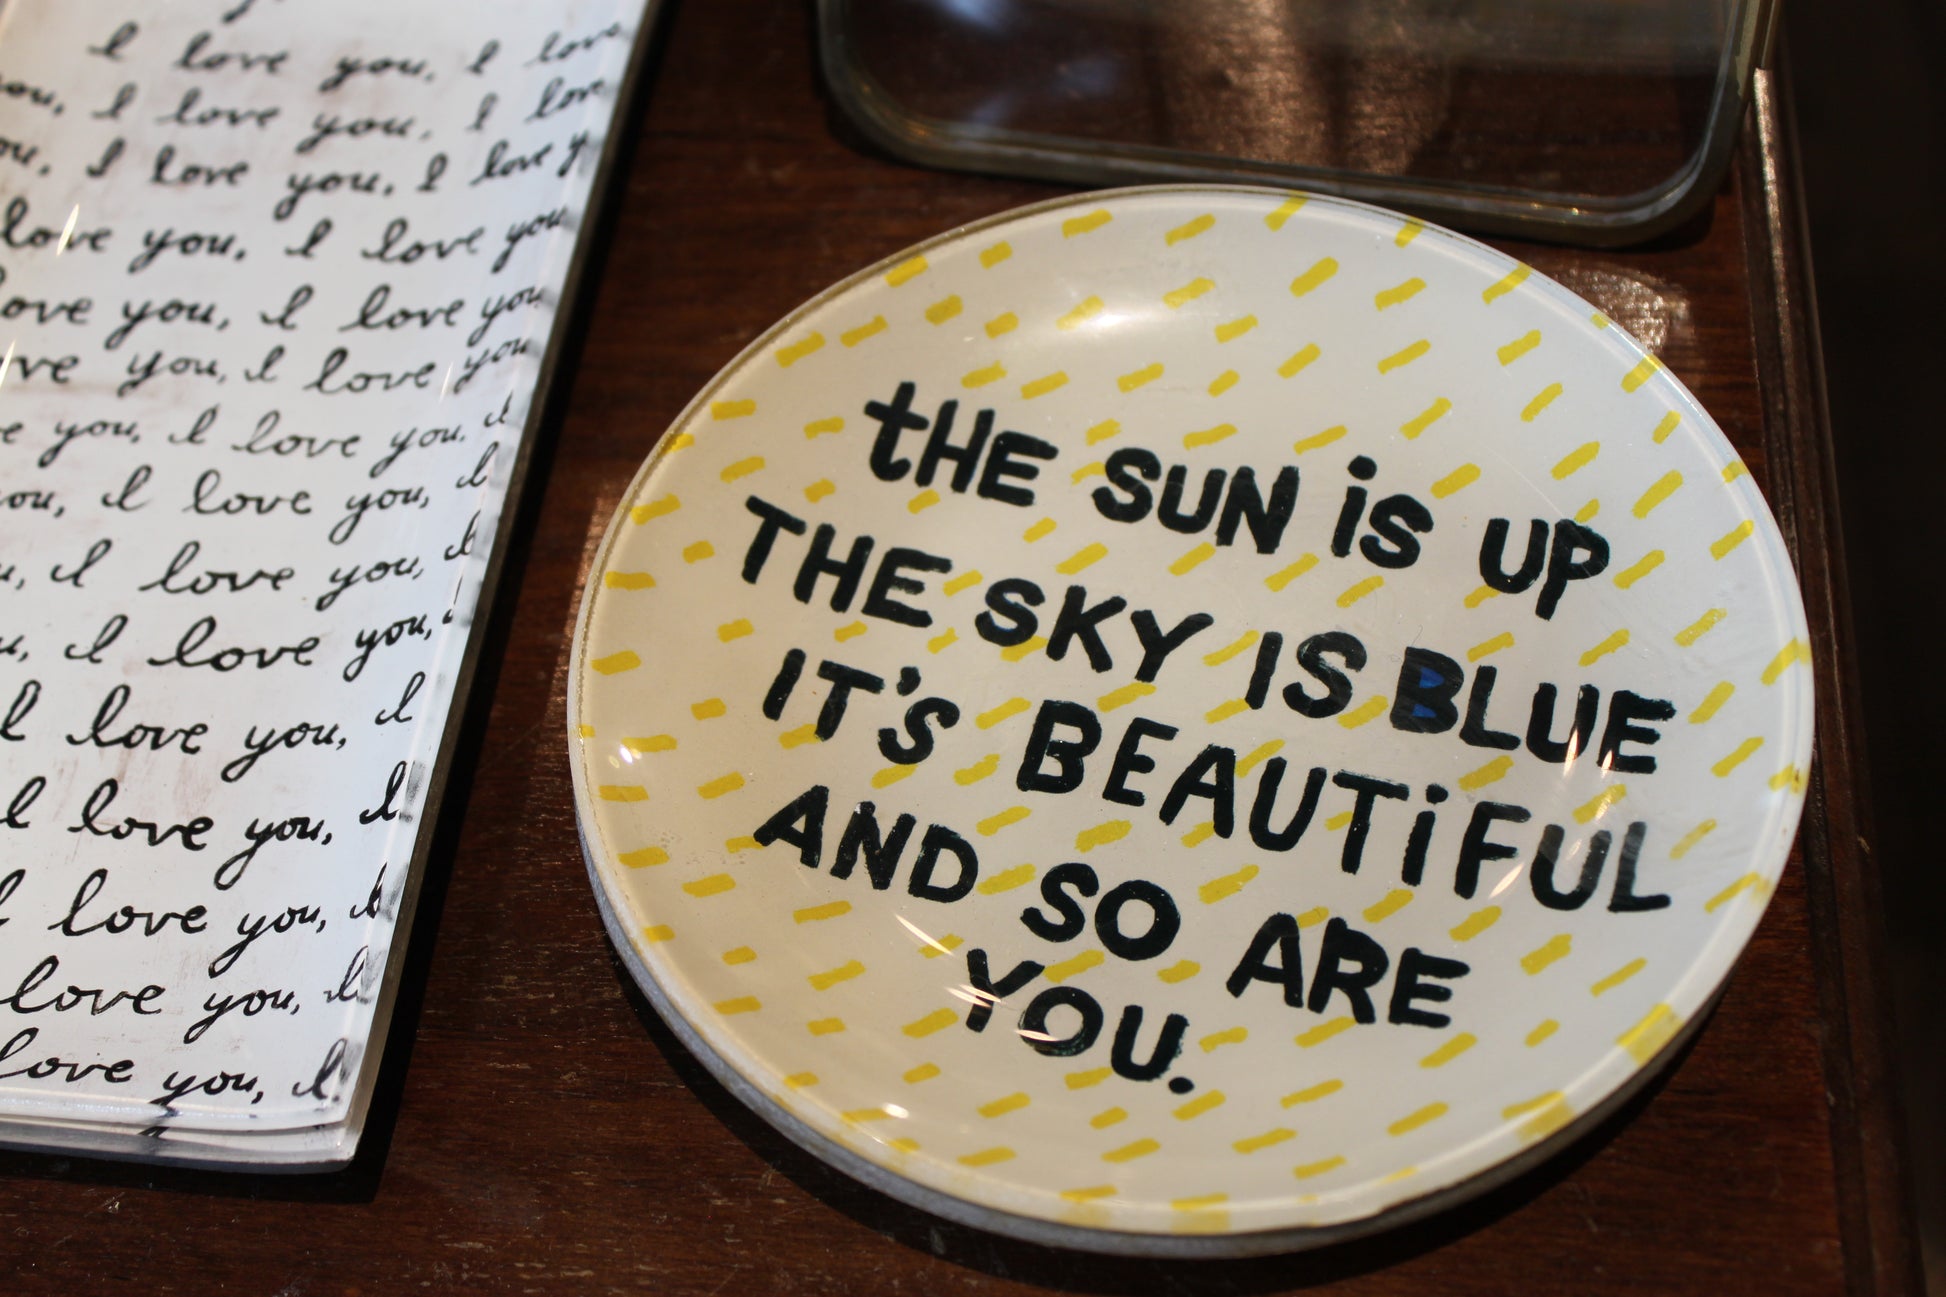 I love you, I love
you, I love you, I love
ou, I love you, I love y
love you, I love you
ove you, I love you
ve you, I love you
e you, I love you, I
you, I love you, I
u, I love you, I
u, I love you, I
I love you, I
I love you, I
I love you, I
love you, I
love you, I
tHE SUN iS UP
THE SKY IS BLUE
IT'S BEAUTiFUL
AND SO ARE
YOU.